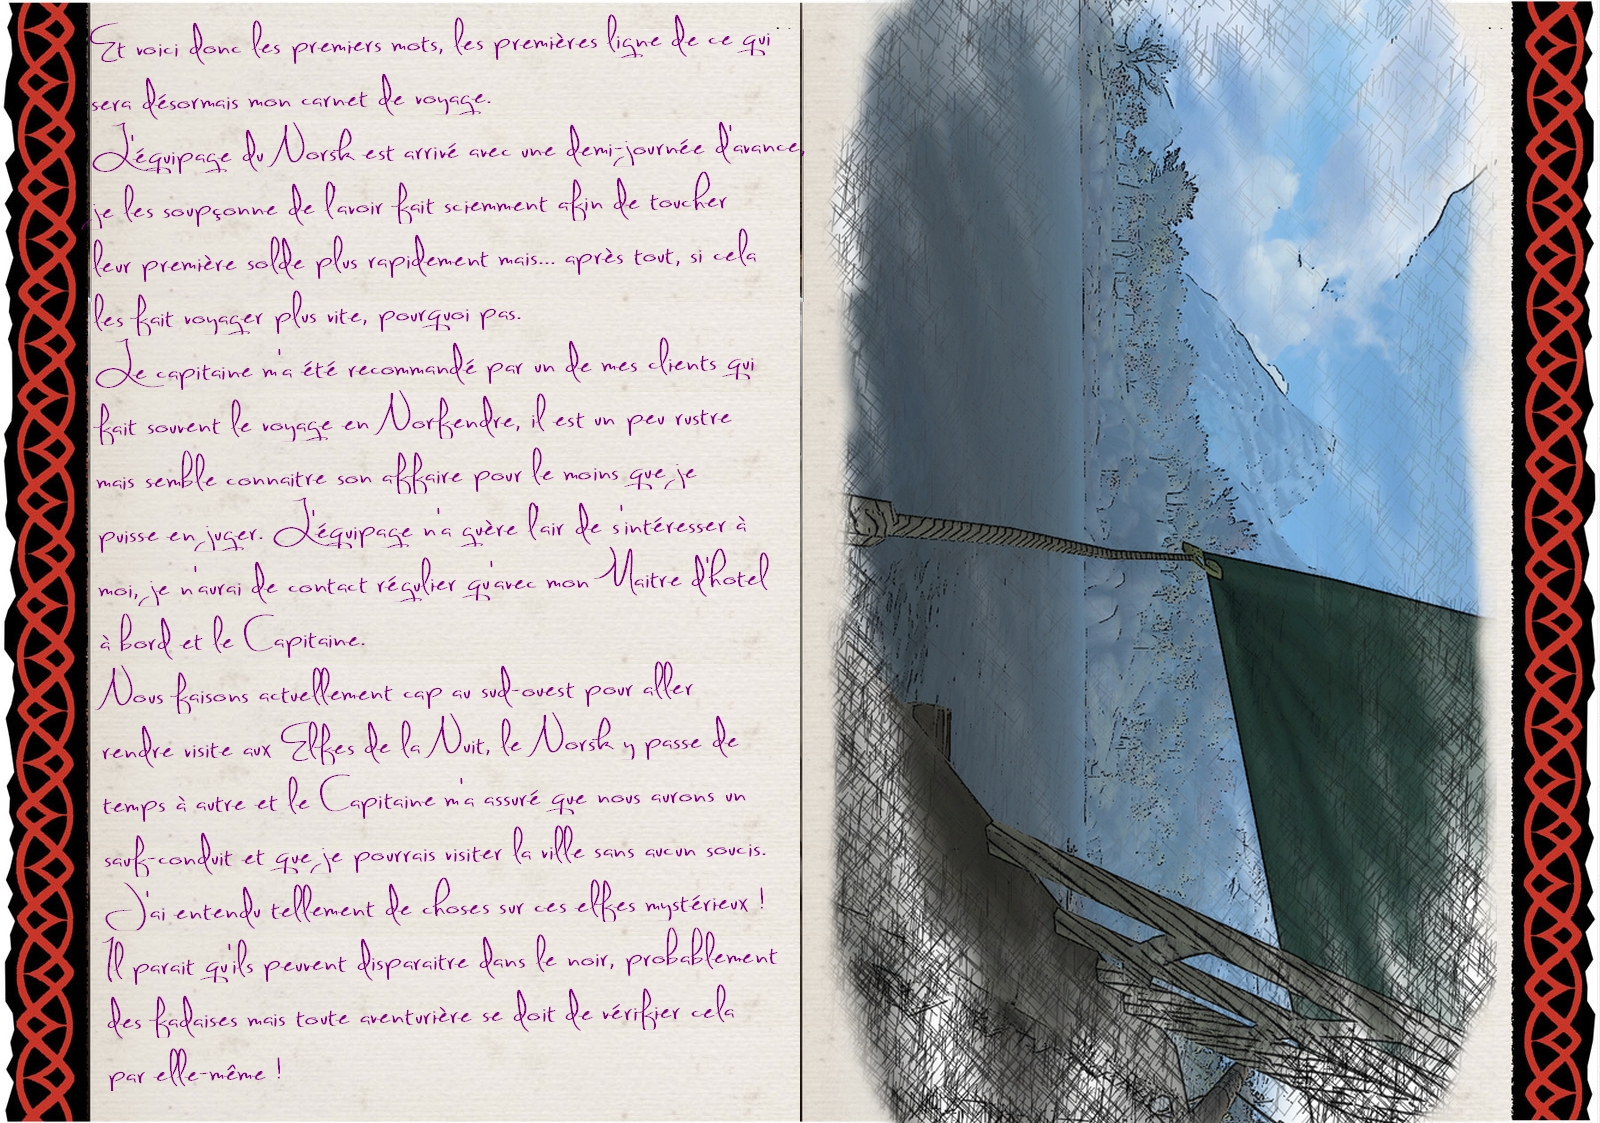 Et voici donc les premiers mots, les premières ligne de ce qui
sera désormais mon carnet de voyage.
L'équipage du Norsk est arrivé avec une demi-journée d'avance,
je les soupçonne de l'avoir fait sciemment afin de toucher
leur première solde plus rapidement mais... après tout, si cela
les fait voyager plus vite, pourquoi pas.
Le capitaine m'a été recommandé par un de mes clients qui
fait souvent le voyage en Norfendre, il est un peu rustre
mais semble connaitre son affaire pour le moins que je
puisse en juger. L'équipage n'a guère l'air de s'intéresser à
moi, je n'aurai de contact régulier qu'avec mon Maitre d'hotel
à bord et le Capitaine.
Nous faisons actuellement cap au sud-ouest pour aller
rendre visite aux Elfes de la Nuit, le Norsk y passe de
temps à autre et le Capitaine m'a assuré que nous aurons un
sauf-conduit et que je pourrais visiter la ville sans aucun soucis.
J'ai entendu tellement de choses sur ces elfes mystérieux !
Il parait qu'ils peuvent disparaitre dans le noir, probablement
des fadaises mais toute aventurière se doit de vérifier cela
par elle-même !